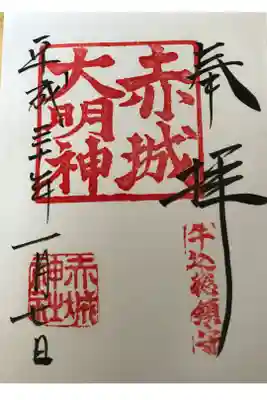 奉拝
牛込総鎮守
赤城
大明神
赤城
神社
平成三十年一月廿日